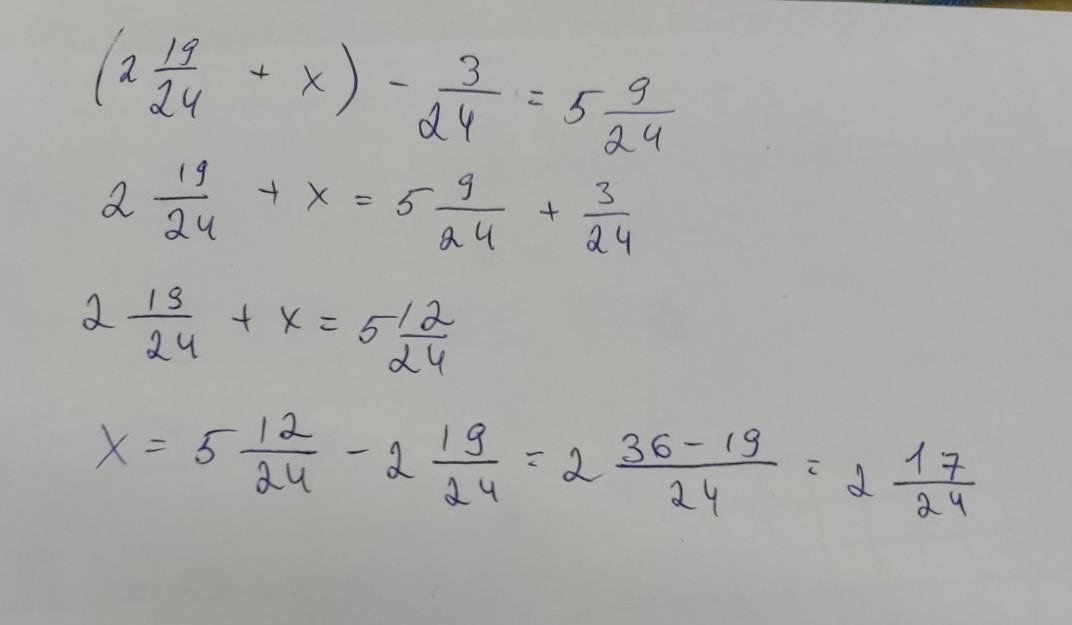 (2 19/24 + x) - 3/24 = 5 9/24
2 19/24 + x = 5 9/24 + 3/24
2 19/24 + x = 5 12/24
x = 5 12/24 - 2 19/24 = 2 36-19/24 = 2 17/24